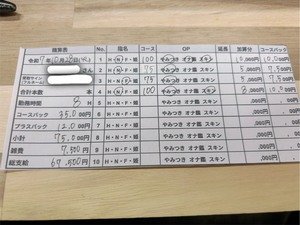 精算表 No. 指名 コース OP 延長 加算分 コースバック
令和7年10月28日(火) 1 H・N・F・姫 100 やみつき オナ鑑 スキン 10,000円
さん 2 H・N・F・姫 75 やみつき オナ鑑 スキン 7,500円
3 H・N・F・姫 75 やみつき オナ鑑 スキン
合計本数 本 4 H・N・F・姫 100 やみつき オナ鑑 スキン
勤務時間 8 H 5 H・N・F・姫 やみつき オナ鑑 スキン ,000円 ,000円
コースバック 35,000円 6 H・N・F・姫 やみつき オナ鑑 スキン ,000円 ,000円
プラスバック 12,000円 7 H・N・F・姫 やみつき オナ鑑 スキン ,000円 ,000円
小計 75,000円 8 H・N・F・姫 やみつき オナ鑑 スキン ,000円 ,000円
雑費 7,500円 9 H・N・F・姫 やみつき オナ鑑 スキン ,000円 ,000円
総支給 67,500円 10 H・N・F・姫 やみつき オナ鑑 スキン ,000円 ,000円